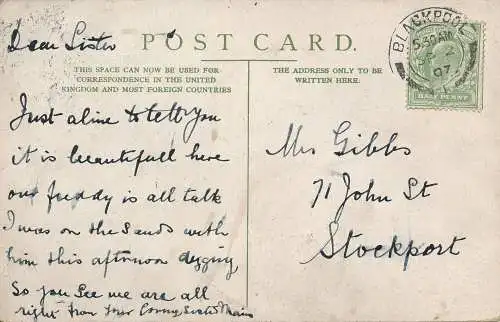 Dear Sister
POST CARD.
THIS SPACE CAN NOW BE USED FOR
CORRESPONDENCE IN THE UNITED
KINGDOM AND MOST FOREIGN COUNTRIES
Just a line to tell you
it is beautifull here
our freddy is all talk
I was on the Sands with
him this afternoon digging
So you See we are all
right from your
THE ADDRESS ONLY TO BE
WRITTEN HERE.
Mrs Gibbs
71 John St
Stockport
BLACKPOOL
5.30 AM
SP 2
07
HALF PENNY